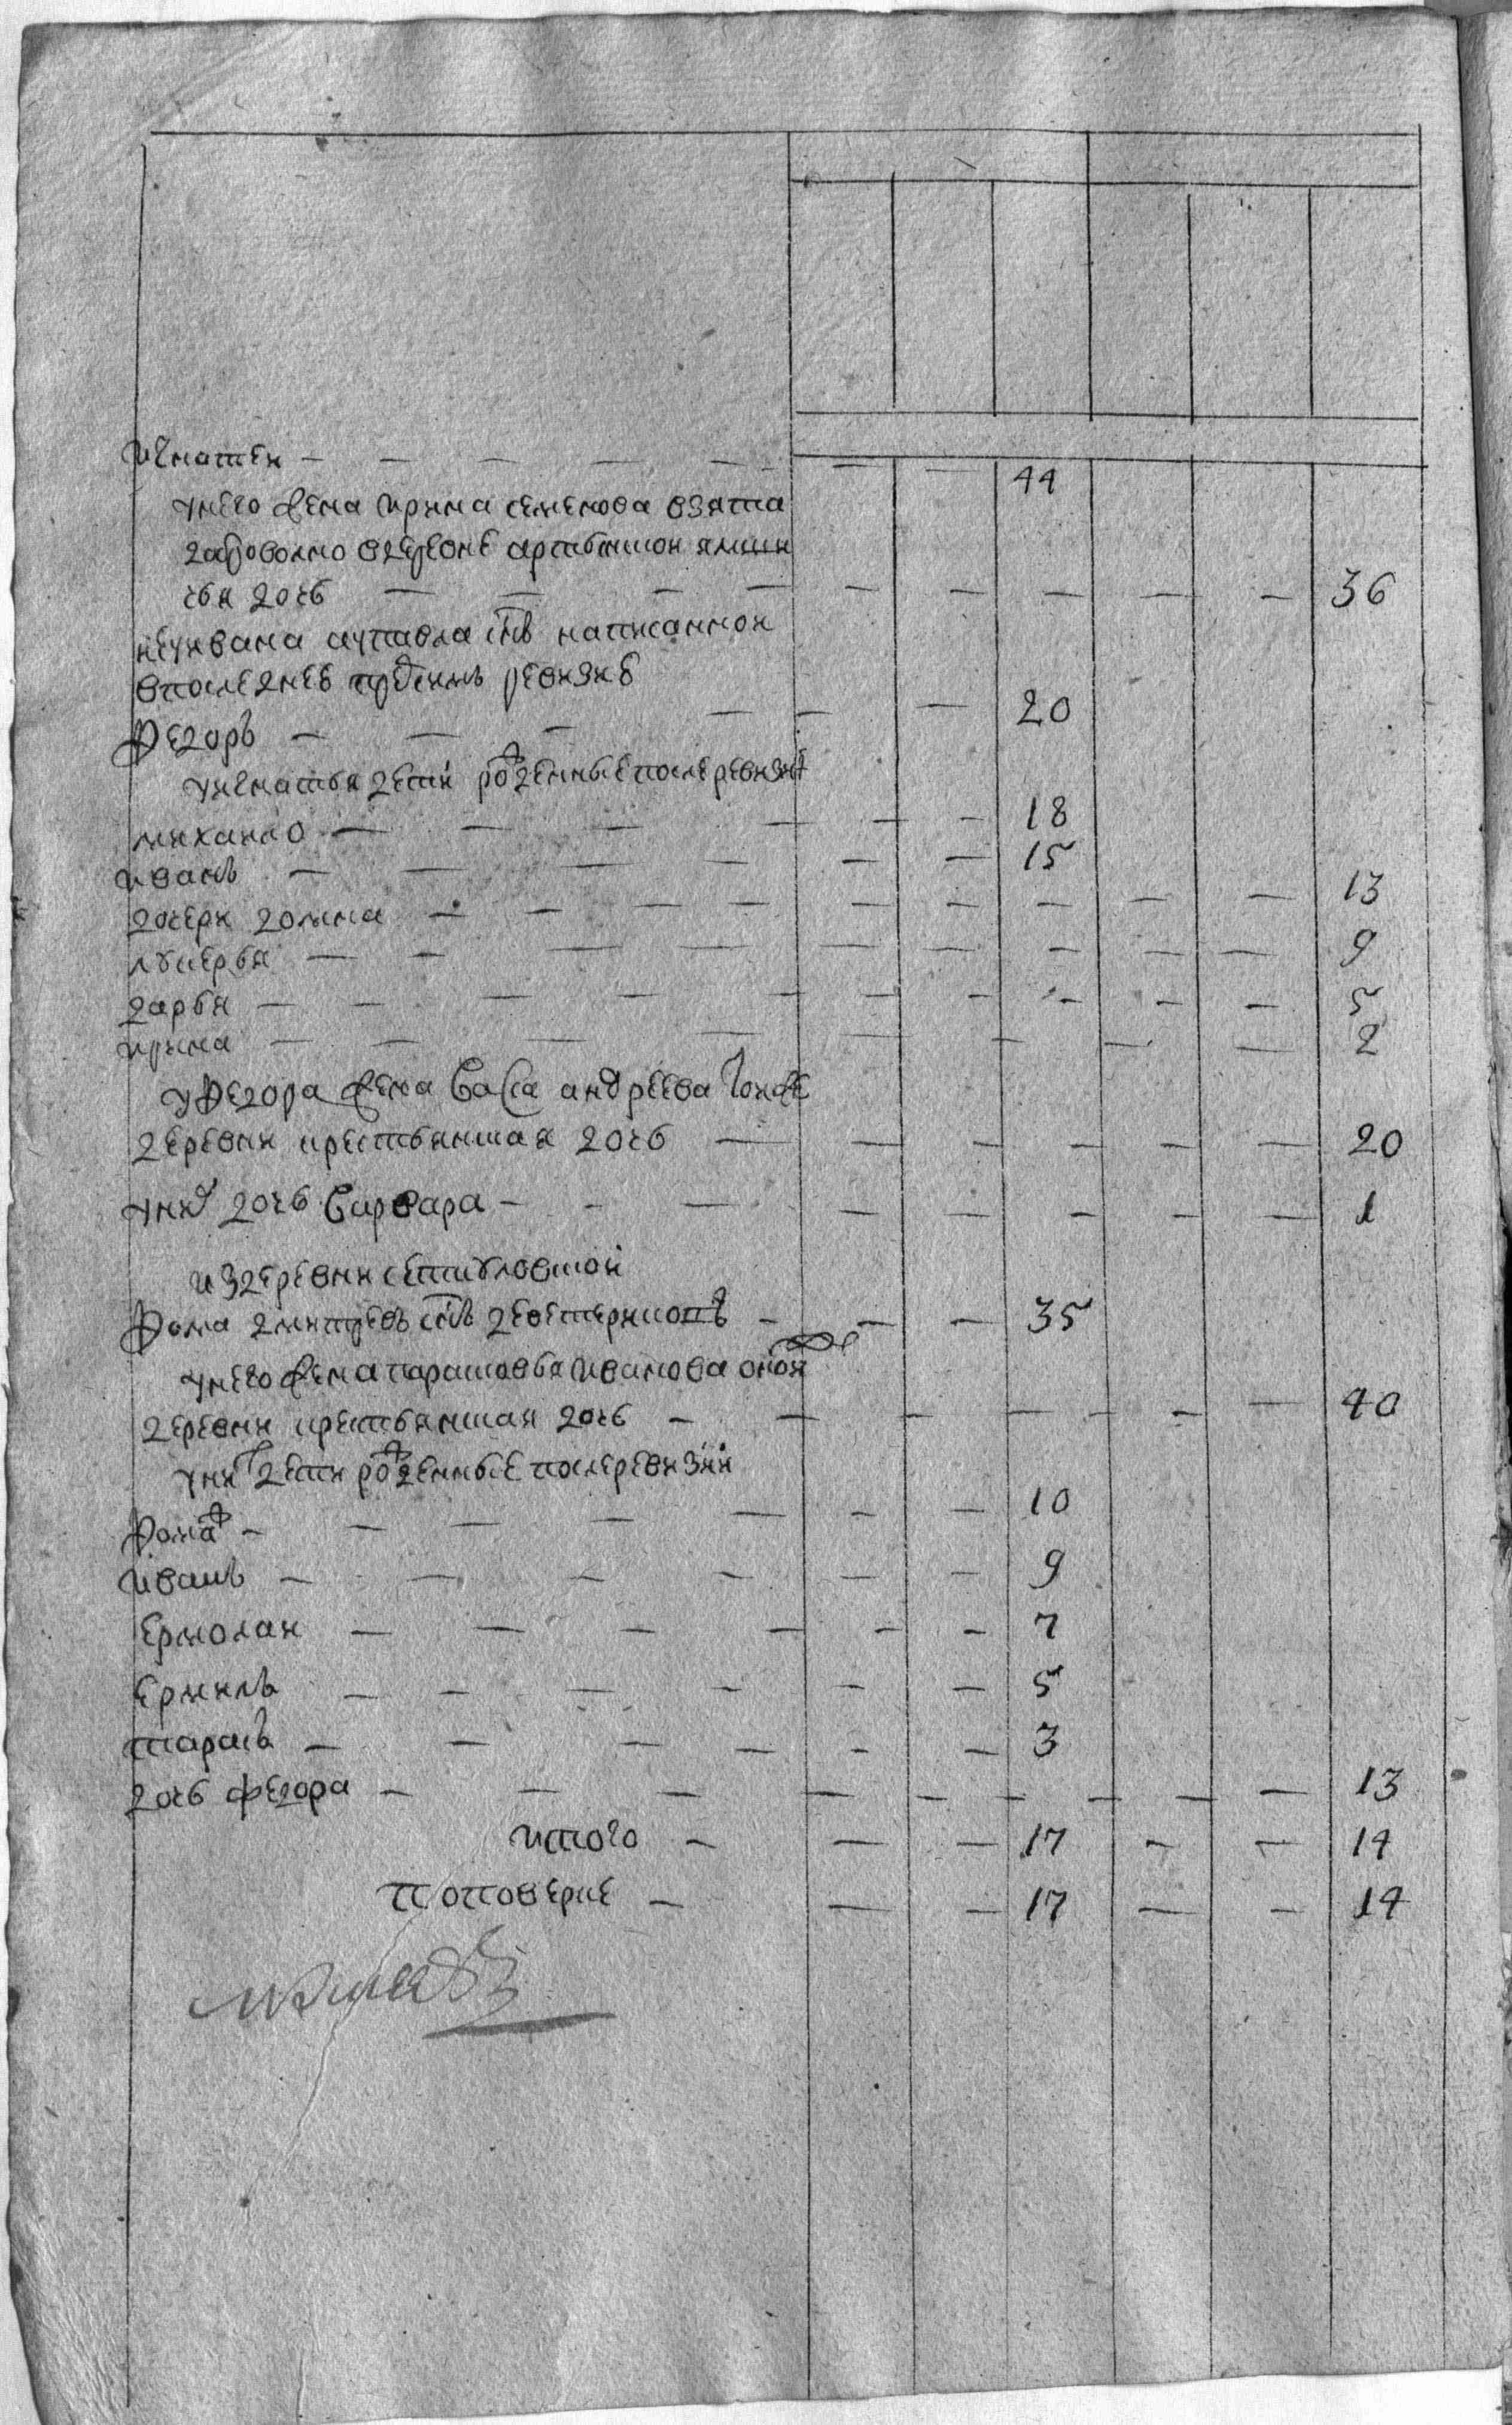 игнатеи — — — — — — — 44
унего жена ирина семенова взята
задоволно вдеревне
чья дочь — — — — — — — — — 36
написаннои
впоследнеи пред симъ ревизие
Федоръ — — — — — — 20
уигнатья дети рожденные после ревизии
михаило — — — — — — 18
иванъ — — — — — — 15
дочери домна — — — — — — — — — 13
лукерья — — — — — — — — — 9
дарья — — — — — — — — — — 5
ирина — — — — — — — — — 2
уФедора жена Васса андреева тоиже
деревни крестьянская дочь — — — — — — — 20
уних дочь Варвара — — — — — — — — 1
из деревни
Фома дмитревъ снъ — — — 35
унего жена парасковья иванова онои
деревни крестьянская дочь — — — — — — — 40
уних дети рожденные после ревизии
Фома ж — — — — — — — 10
иванъ — — — — — — 9
ермолаи — — — — — — — 7
ермилъ — — — — — — 5
тарасъ — — — — — — 3
дочь федора — — — — — — — — — 13
итого — — — 17 — — 14
поповерке — — — 17 — — 14